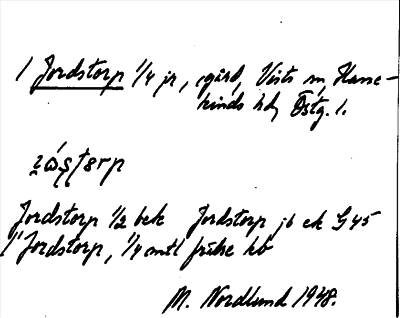 1 Jordstorp 1/4 jr, gård, Vists sn, Hane-
kinds hd, Östg. l.
Jordstorp 1/2 bek Jordstorp jb ek G45
1 Jordstorp, 1/4 mtl frälse hb
M. Nordlund 1948.